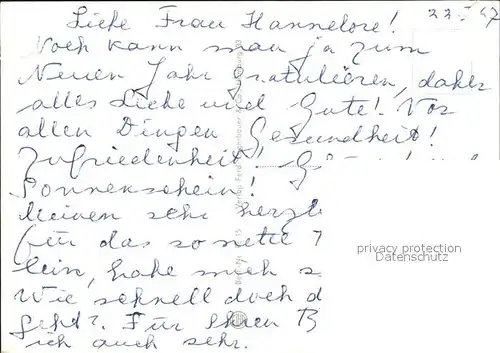 22.I.87
Liebe Frau Hannelore!
Noch kann man ja zum
Neuen Jahr gratulieren, daher
alles Liebe und Gute! Vor
allen Dingen Gesundheit!
Zufriedenheit!
Sonnenschein!
Meinen sehr herzl
für das so nette
lein, habe mich s
Wie schnell doch d
geht? Für Ihren B
ich auch sehr.
privacy protection
DasAnsichtskartenlager.com